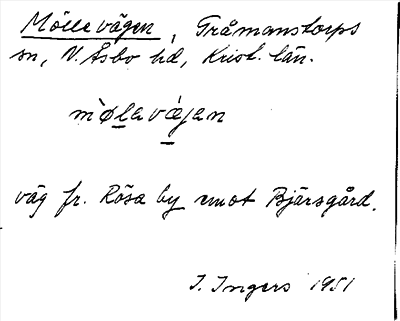 Möllevägen, Gråmanstorps
sn, V. Åsbo hd, Krist. län.
mø̀lavǽjan
väg fr. Rösa by emot Bjärsgård.
I. Ingers 1951